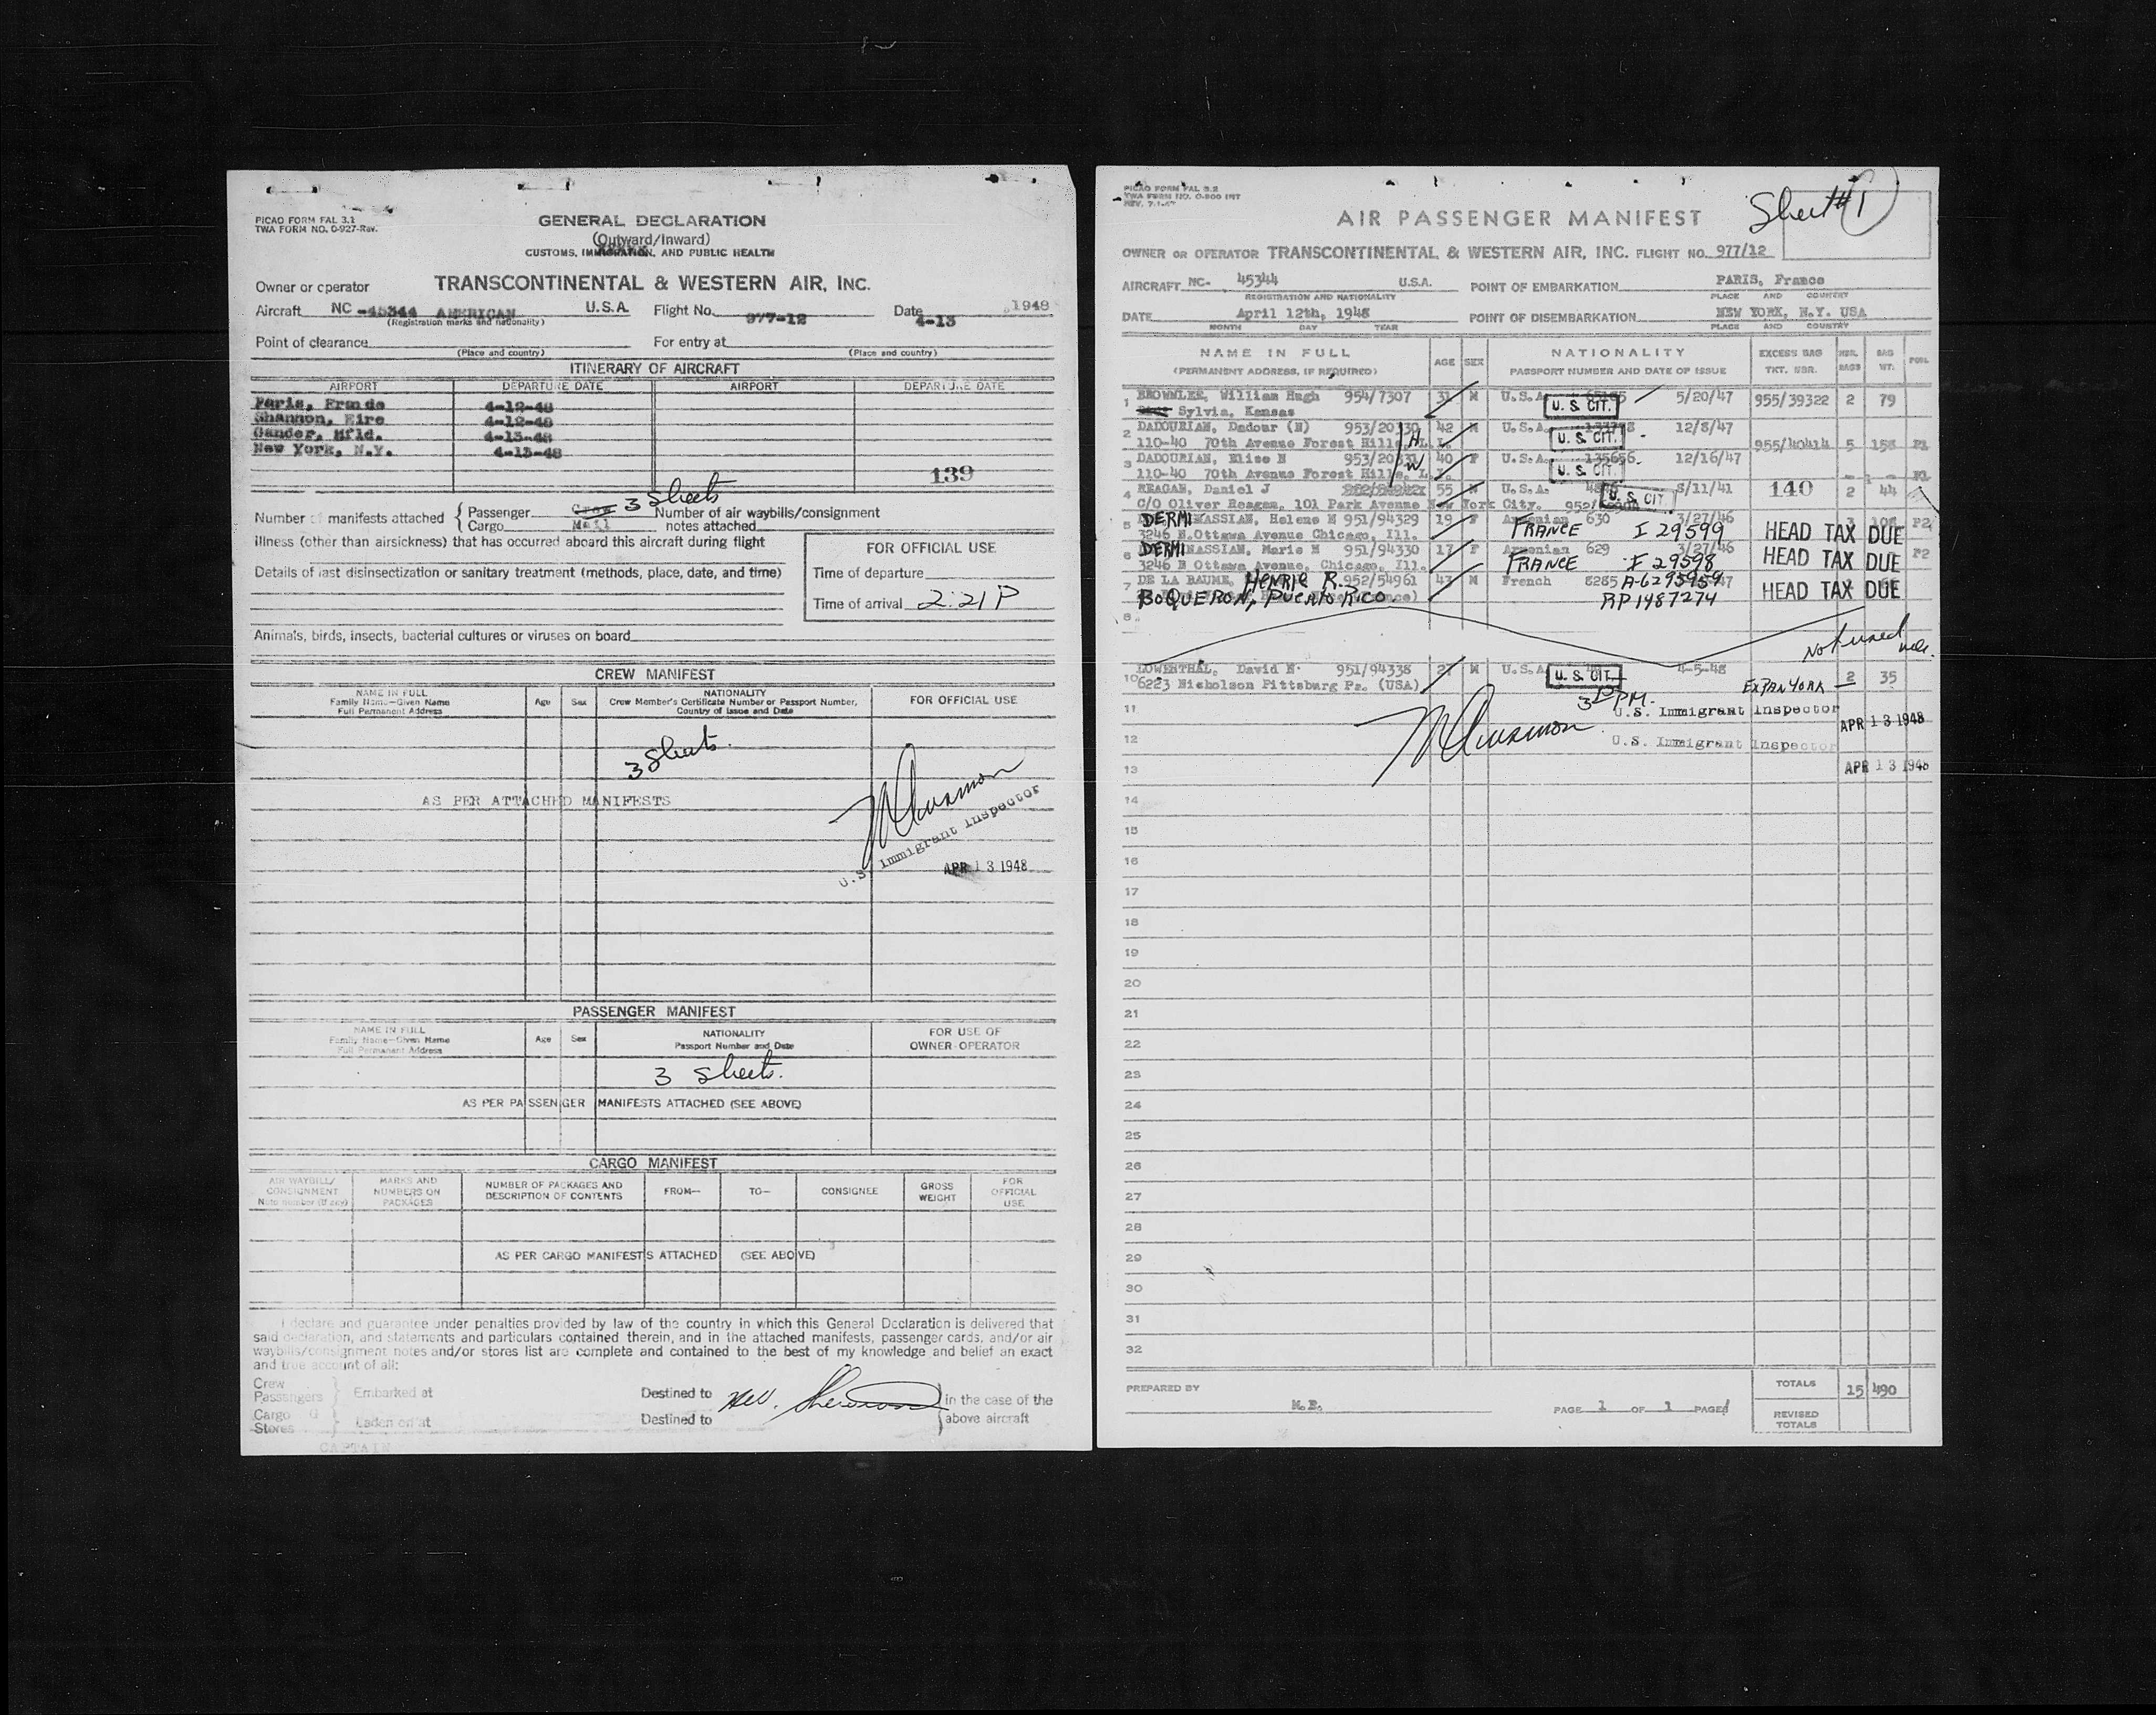 PICAO FORM FAL 3.1
TWA FORM NO. O-927-Rev.
GENERAL DECLARATION
(Outward/Inward)
CUSTOMS, IMMIGRATION, AND PUBLIC HEALTH
Owner or operator TRANSCONTINENTAL & WESTERN AIR, INC.
Aircraft NC -45344 AMERICAN U.S.A. Flight No. 977-12 Date 4-13 1948
(Registration marks and nationality)
Point of clearance For entry at
(Place and country) (Place and country)
ITINERARY OF AIRCRAFT
AIRPORT DEPARTURE DATE AIRPORT DEPARTURE DATE
Paris, France 4-12-48
Shannon, Eire 4-12-48
Gander, Nfld. 4-13-48
New York, N.Y. 4-13-48
139
Number of manifests attached Passenger Crew 3 Sheets Number of air waybills/consignment
Cargo Mail notes attached
Illness (other than airsickness) that has occurred aboard this aircraft during flight
Details of last disinsectization or sanitary treatment (methods, place, date, and time)
FOR OFFICIAL USE
Time of departure
Time of arrival 2:21 P
Animals, birds, insects, bacterial cultures or viruses on board
CREW MANIFEST
NAME IN FULL
Family Name—Given Name
Full Permanent Address
Age Sex
NATIONALITY
Crew Member's Certificate Number or Passport Number,
Country of Issue and Date
FOR OFFICIAL USE
3 Sheets.
AS PER ATTACHED MANIFESTS
U.S. Immigrant Inspector
APR 13 1948
PASSENGER MANIFEST
NAME IN FULL
Family Name—Given Name
Full Permanent Address
Age Sex
NATIONALITY
Passport Number and Date
FOR USE OF
OWNER-OPERATOR
3 Sheets.
AS PER PASSENGER MANIFESTS ATTACHED (SEE ABOVE)
CARGO MANIFEST
AIR WAYBILL/
CONSIGNMENT
Note number (if any)
MARKS AND
NUMBERS ON
PACKAGES
NUMBER OF PACKAGES AND
DESCRIPTION OF CONTENTS
FROM— TO— CONSIGNEE
GROSS
WEIGHT
FOR
OFFICIAL
USE
AS PER CARGO MANIFESTS ATTACHED (SEE ABOVE)
I declare and guarantee under penalties provided by law of the country in which this General Declaration is delivered that
said declaration, and statements and particulars contained therein, and in the attached manifests, passenger cards, and/or air
waybills/consignment notes and/or stores list are complete and contained to the best of my knowledge and belief an exact
and true account of all:
Crew
Passengers Embarked at Destined to in the case of the
Cargo
Stores Laden on at Destined to above aircraft
CAPTAIN
PICAO FORM FAL 3.2
TWA FORM NO. O-900 INT
REV. 7-1-47
AIR PASSENGER MANIFEST
Sheet #1
OWNER OR OPERATOR TRANSCONTINENTAL & WESTERN AIR, INC. FLIGHT NO. 977/12
AIRCRAFT NC- 45344 U.S.A. POINT OF EMBARKATION PARIS, France
REGISTRATION AND NATIONALITY PLACE AND COUNTRY
DATE April 12th, 1948 POINT OF DISEMBARKATION NEW YORK, N.Y. USA
MONTH DAY YEAR PLACE AND COUNTRY
NAME IN FULL AGE SEX NATIONALITY EXCESS BAG NBR. BAG
(PERMANENT ADDRESS, IF REQUIRED) PASSPORT NUMBER AND DATE OF ISSUE TKT. NBR. BAGS WT.
1 BROWNLEE, William Hugh 954/7307 31 M U.S.A. U. S. CIT. 5/20/47 955/39322 2 79
Sylvia, Kansas
2 DADOURIAN, Dadour (N) 953/20330 42 M U.S.A. U. S. CIT. 12/8/47
110-40 70th Avenue Forest Hills, L.I. H 955/40414 5 158 P1
3 DADOURIAN, Elise N 953/20331 40 F U.S.A. 135656 U. S. CIT. 12/16/47
110-40 70th Avenue Forest Hills, L.I. W P1
4 REAGAN, Daniel J 55 M U.S.A. U. S. CIT 8/11/41 140 2 44
C/O Oliver Reagan, 101 Park Avenue New York City. 952/
5 DERMINASSIAN, Helene N 951/94329 19 F Armenian 630 3/27/46 P2
3246 N.Ottawa Avenue Chicago, Ill. FRANCE I 29599 HEAD TAX DUE
6 DERMINASSIAN, Marie N 951/94330 17 F Armenian 629 3/27/46 P2
3246 N Ottawa Avenue, Chicago, Ill. FRANCE I 29598 HEAD TAX DUE
7 DE LA BAUME, HENRIE R. 952/54961 43 M French 8285 A-6295959
BOQUERON, PUERTO RICO RP 1487274 HEAD TAX DUE
8
Not used
LOWENTHAL, David N. 951/94338 27 M U.S.A. U. S. CIT. 4-5-48
10 6223 Nicholson Pittsburg Pa. (USA) 2 35
11 EXPANYORK U.S. Immigrant Inspector APR 13 1948
12 U.S. Immigrant Inspector
13 APR 13 1948
14
15
16
17
18
19
20
21
22
23
24
25
26
27
28
29
30
31
32
PREPARED BY M.B. PAGE 1 OF 1 PAGES
TOTALS 15 490
REVISED
TOTALS